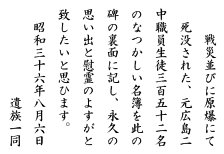 戦災並びに原爆にて
死没された、元広島二
中職員生徒三百五十二名
のなつかしい名簿を此の
碑の裏面に記し、永久の
思い出と慰霊のよすがと
致したいと思ひます。
昭和三十六年八月六日
遺族一同